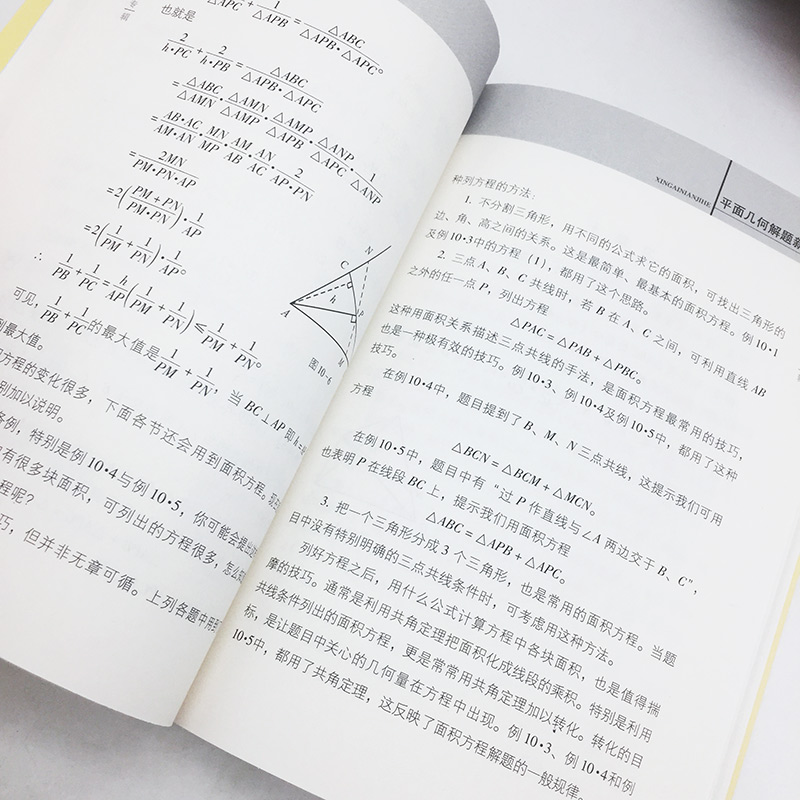 专辑
△APC + 1/△APB = △ABC/(△APB·△APC)。
也就是
2/(h·PC) + 2/(h·PB) = △ABC/(△APB·△APC)
= △ABC/△AMN · △AMN/△AMP · △AMP/△APB · △ANP/△APC · 1/△ANP
= (AB·AC)/(AM·AN) · MN/MP · AM/AB · AN/AC · 2/(AP·PN)
= 2MN/(PM·PN·AP)
= 2((PM + PN)/(PM·PN)) · 1/AP
= 2(1/PM + 1/PN) · 1/AP。
∴ 1/PB + 1/PC = h/AP(1/PM + 1/PN) ≤ 1/PM + 1/PN。
可见, 1/PB + 1/PC 的最大值是 1/PM + 1/PN, 当 BC⊥AP 即 h=
到最大值。
N
C
A
h
P
B
M
图 10·6
方程的变化很多，下面各节还会用到面积方程。
别加以说明。
条例，特别是例 10·4与例 10·5，你可能会提出
有很多块面积，可列出的方程很多，怎么
程呢？
巧，但并非无章可循。上列各题中用到
XINGAINIANJIHE
平面几何解题新
种列方程的方法：
1. 不分割三角形，用不同的公式求它的面积，可找出三角形的
边、角、高之间的关系。这是最简单、最基本的面积方程。例 10·1
及例 10·3中的方程（1），都用了这个思路。
2. 三点 A、B、C 共线时，若 B 在 A、C 之间，可利用直线 AB
之外的任一点 P，列出方程
△PAC = △PAB + △PBC。
这种用面积关系描述三点共线的手法，是面积方程最常用的技巧，
也是一种极有效的技巧。例 10·3、例 10·4及例 10·5中，都用了这种
技巧。
在例 10·4中，题目提到了 B、M、N 三点共线，这提示我们可用
方程
△BCN = △BCM + △MCN。
在例 10·5中，题目中有“过 P 作直线与∠A 两边交于 B、C”，
也表明 P 在线段 BC 上，提示我们用面积方程
△ABC = △APB + △APC。
3. 把一个三角形分成 3 个三角形，也是常用的面积方程。当题
目中没有特别明确的三点共线条件时，可考虑用这种方法。
列好方程之后，用什么公式计算方程中各块面积，也是值得揣
摩的技巧。通常是利用共角定理把面积化成线段的乘积。特别是利用
共线条件列出的面积方程，更是常常用共角定理加以转化。转化的目
标，是让题目中关心的几何量在方程中出现。例 10·3、例 10·4 和例
10·5中，都用了共角定理，这反映了面积方程解题的一般规律。